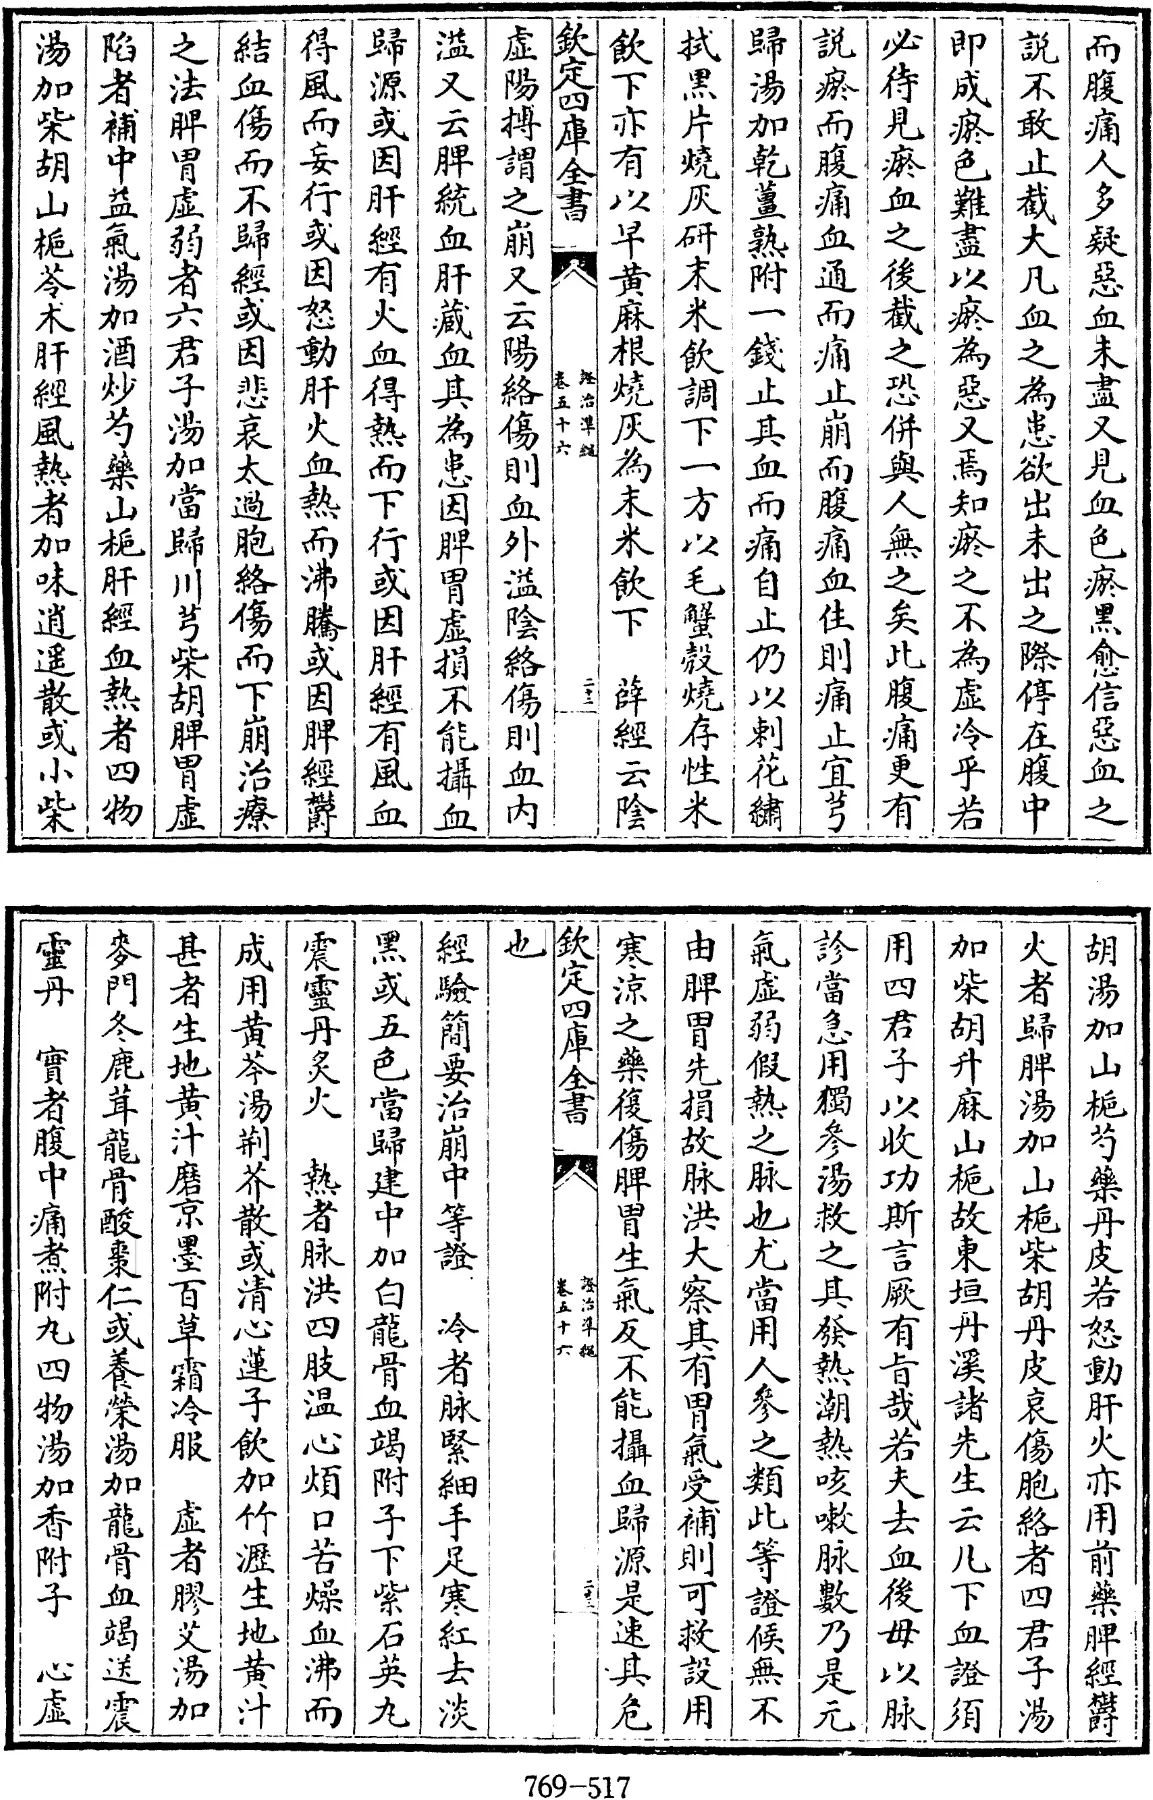 而腹痛人多疑惡血未盡又見血色瘀黑愈信惡血之
說不敢止截大凡血之為患欲出未出之際停在腹中
即成瘀色難盡以瘀為惡又焉知瘀之不為虛冷乎若
必待見瘀血之後截之恐併與人無之矣此腹痛更有
說瘀而腹痛血通而痛止崩而腹痛血住則痛止宜芎
歸湯加乾薑熟附一錢止其血而痛自止仍以刺花繡
拭黑片燒灰研末米飲調下一方以毛蟹殼燒存性米
飲下亦有以旱黃麻根燒灰為末米飲下　薛經云陰
欽定四庫全書
證治準繩
卷五十六
二十二
虛陽搏謂之崩又云陽絡傷則血外溢陰絡傷則血內
溢又云脾統血肝藏血其為患因脾胃虛損不能攝血
歸源或因肝經有火血得熱而下行或因肝經有風血
得風而妄行或因怒動肝火血熱而沸騰或因脾經鬱
結血傷而不歸經或因悲哀太過胞絡傷而下崩治療
之法脾胃虛弱者六君子湯加當歸川芎柴胡脾胃虛
陷者補中益氣湯加酒炒芍藥山梔肝經血熱者四物
湯加柴胡山梔苓朮肝經風熱者加味逍遙散或小柴
胡湯加山梔芍藥丹皮若怒動肝火亦用前藥脾經鬱
火者歸脾湯加山梔柴胡丹皮哀傷胞絡者四君子湯
加柴胡升麻山梔故東垣丹溪諸先生云凡下血證須
用四君子以收功斯言厥有旨哉若夫去血後毋以脉
診當急用獨參湯救之其發熱潮熱咳嗽脉數乃是元
氣虛弱假熱之脉也尤當用人參之類此等證候無不
由脾胃先損故脉洪大察其有胃氣受補則可救設用
寒涼之藥復傷脾胃生氣反不能攝血歸源是速其危
欽定四庫全書
證治準繩
卷五十六
二十三
也
經驗簡要治崩中等證　冷者脉緊細手足寒紅去淡
黑或五色當歸建中加白龍骨血竭附子下紫石英丸
震靈丹炙火　熱者脉洪四肢温心煩口苦燥血沸而
成用黃芩湯荆芥散或清心蓮子飲加竹瀝生地黃汁
甚者生地黃汁磨京墨百草霜冷服　虛者膠艾湯加
麥門冬鹿茸龍骨酸棗仁或養榮湯加龍骨血竭送震
靈丹　實者腹中痛煮附丸四物湯加香附子　心虛
769-517